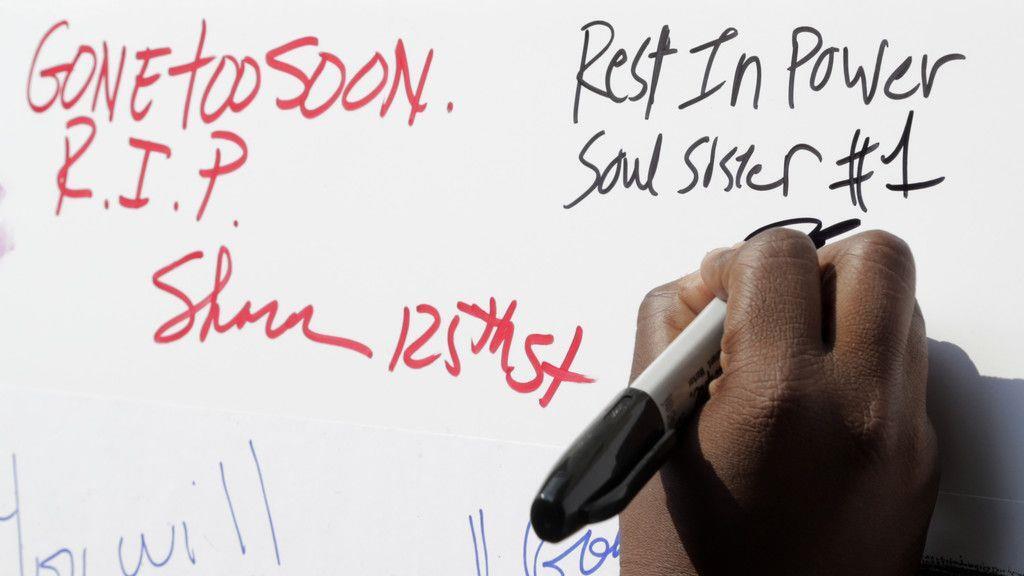 GONE too SOON.
R.I.P.
Shon 125th St
Rest In Power
Soul Sister #1
You will